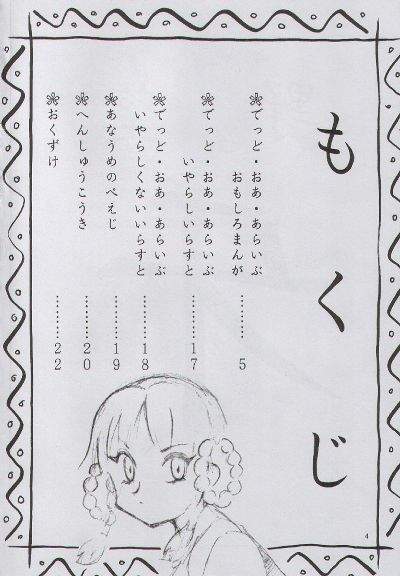 もくじ
❀でっど・おあ・あらいぶ
おもしろまんが…………5
❀でっど・おあ・あらいぶ
いやらしいらすと…………17
❀でっど・おあ・あらいぶ
いやらしくないいらすと…………18
❀あなうめのぺえじ…………19
❀へんしゅうこうき…………20
❀おくずけ…………22
4